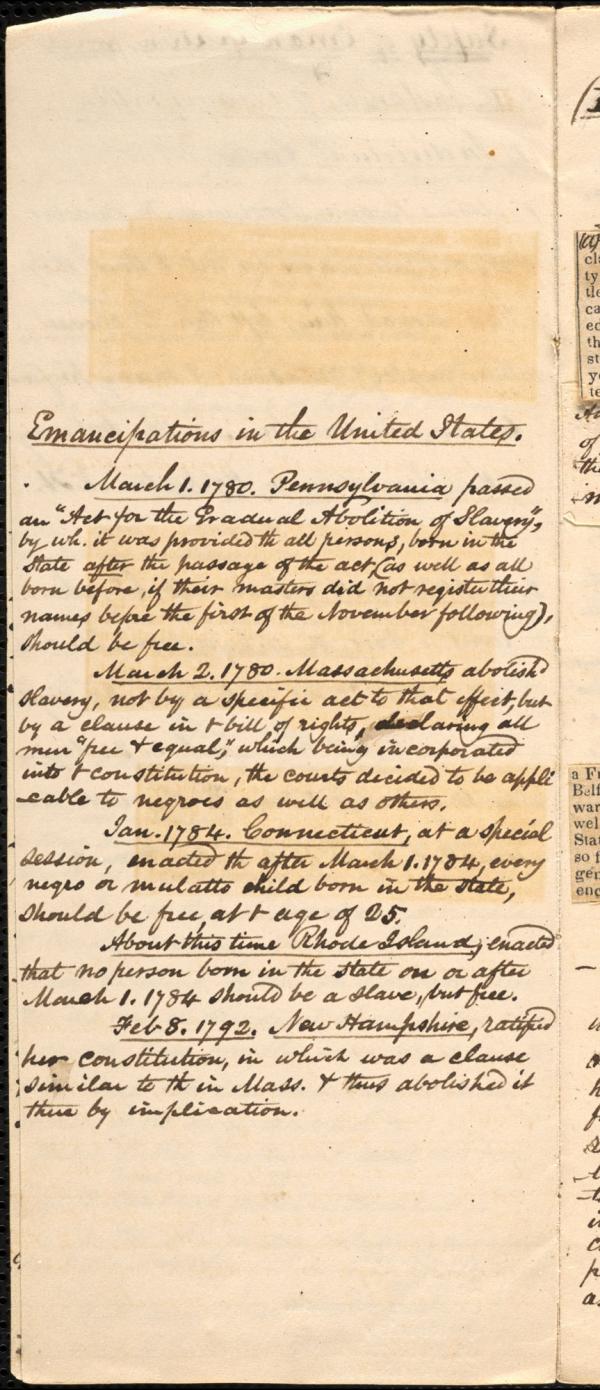 Emancipations in the United States.
March 1. 1780. Pennsylvania passed
an "Act for the Gradual Abolition of Slavery",
by wh. it was provided th all persons, born in the
State after the passage of the act, (as well as all
born before, if their masters did not register their
names before the first of the November following),
should be free.
March 2. 1780. Massachusetts abolishd
slavery, not by a specific act to that effect, but
by a clause in t bill of rights, declaring all
men "free & equal;" which being incorporated
into t constitution, the courts decided to be appli
-cable to negroes as well as others.
Jan. 1784. Connecticut, at a special
session, enacted th after March 1. 1784, every
negro or mulatto child born in the state,
should be free, at t age of 25.
About this time Rhode Island, enacted
that no person born in the state on or after
March 1. 1784 should be a slave, but free.
Feb 8. 1792. New Hampshire, ratified
her constitution, in which was a clause
similar to th in Mass. & thus abolished it
there by implication.
(a)
cla
ty
tle
ca
ed
th
st
yo
te
of
the
in
a Fu
Belf
war
wel
Stat
so f
gen
enc